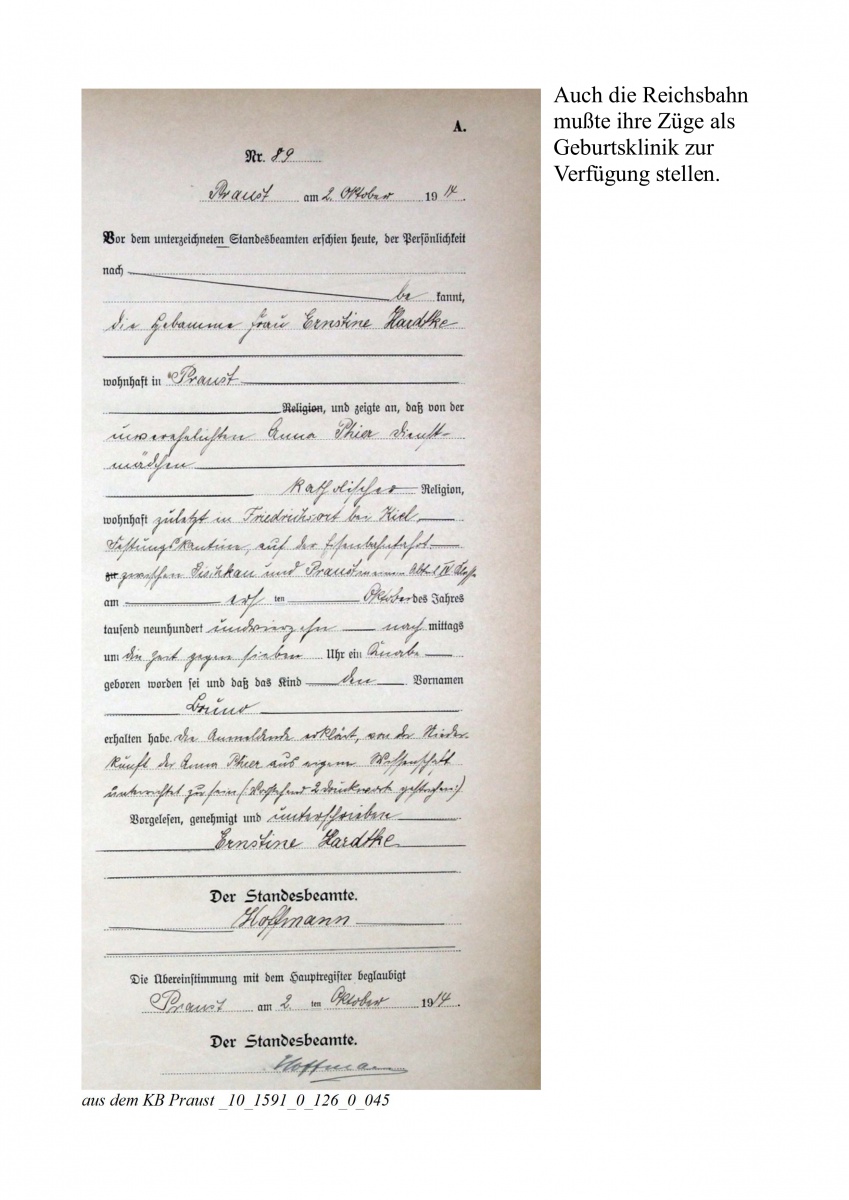 Auch die Reichsbahn
mußte ihre Züge als
Geburtsklinik zur
Verfügung stellen.
A.
Nr. 89
Praust am 2. Oktober 1914.
Vor dem unterzeichneten Standesbeamten erschien heute, der Persönlichkeit
nach
be kannt,
die Hebamme Frau Ernstine Hardtke
wohnhaft in Praust
Religion, und zeigte an, daß von der
unverehelichten Anna Phier Dienst-
mädchen
katholischer Religion,
wohnhaft zuletzt in Friedrichsort bei Kiel,
Festungskantine, auf der Eisenbahnfahrt
zu zwischen und Praust
am ersten Oktober des Jahres
tausend neunhundert undvierzehn nach mittags
um die Zeit gegen sieben Uhr ein Knabe
geboren worden sei und daß das Kind den Vornamen
Bruno
erhalten habe. Die Anmeldende erklärt, von der Nieder-
kunft der Anna Phier aus eigener Wissenschaft
unterrichtet zu sein (Vorstehend 2 Druckworte gestrichen.)
Vorgelesen, genehmigt und unterschrieben
Ernstine Hardtke
Der Standesbeamte.
Hoffmann
Die Übereinstimmung mit dem Hauptregister beglaubigt
Praust am 2. ten Oktober 1914.
Der Standesbeamte.
Hoffmann
aus dem KB Praust _10_1591_0_126_0_045